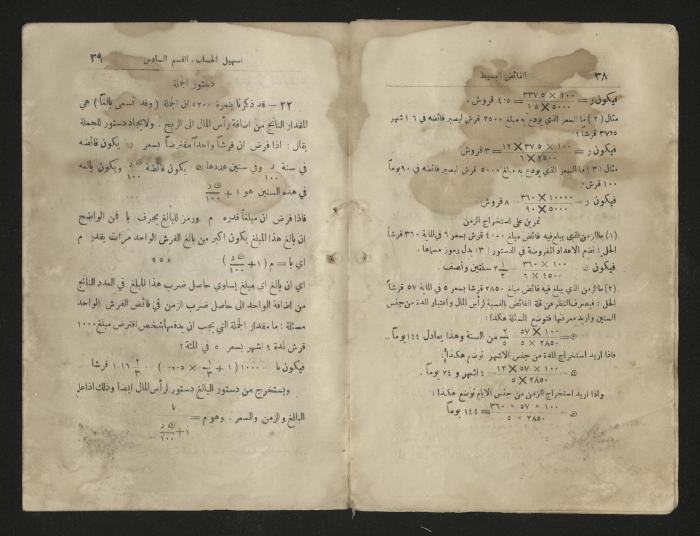 ٣٨ الفائض البسيط
فيكون ر = ١٠٠ × ٣٣٧٥ / ٥٠٠٠ × ١٥ = ٤٠٥ قروش .
مثال (٢) ما السعر الذي يودع به مبلغ ٢٥٠٠ قرش ليصير فائضه في ١٦ شهر
٣٧٥ قرشاً ؛
فيكون ر = ١٢ × ٣٧٥ × ١٠٠ / ٢٥٠٠ × ٦ = ٣ قروش
مثال (٣) ما السعر الذي يودع به مبلغ ٥٠٠٠ قرش ليصير فائضه في ٩٠ يوماً
١٠٠ قرش
فيكون ر = ٣٦٠ × ١٠٠٠٠ / ٥٠٠٠ × ٩٠ = ٨ قروش
تمرين على استخراج الزمن
(١) ما الزمن الذي يبلغ فيه فائض مبلغ ٤٠٠٠ قرش بسعر ٦ في المائة ٣٦٠ قرشاً
الحل : نضع الاعداد المفروضة في الدستور (٣) بدل رموز مساها .
فيكون = ٣٦٠ × ١٠٠ / ٤٠٠٠ × ٦ = سنتين ونصف .
(٢) ما الزمن الذي يبلغ فيه فائض مبلغ ٢٨٥٠ قرشا بسعر ٥ في المائة ٥٧ قرشاً
الحل : قلة الفائض بالنسبة لرأس المال واعتبار المدة من جنس
السنين واريد معرفتها فتوضع المسئلة هكذا :
ه = ٥٧ × ١٠٠ / ٢٨٥٠ × ٥ = ٢ / ٥ من السنة وهذا يعادل ١٤٤ يوماً ..
فاذا اريد استخراج المدة من جنس الاشهر توضع هكذا :
١٢ × ٥٧ × ١٠٠ / ٢٨٥٠ × ٥ = ٤ اشهر و ٢٤ يوماً .
واذا اريد استخراج الزمن من جنس الايام توضع هكذا :
ه = ٣٦٠ × ٥٧ × ١٠٠ / ٢٨٥٠ × ٥ = ١٤٤ يوماً
تسهيل الحساب . القسم السادس ٣٩
دستور الجملة
٢٢ – قد ذكرنا بنمرة «٢٠» ان الجملة (وقد تسمى بالغا) هي
المقدار الناتج من اضافة رأس المال الى الربح . ولايجاد دستور للجملة
يقال : اذا فرض ان قرشا واحداً مفترضا بسعر ر يكون فائضه
في سنة ر / ١٠٠ وفي سنين عددها ه يكون فائضه ه ر / ١٠٠ ويكون بالغه
في هذه السنين هو ١ + ه ر / ١٠٠
فاذا فرض ان مبلغاً قدره م ورمز للبالغ بحرف با فمن الواضح
ان بالغ هذا المبلغ يكون اكبر من بالغ القرش الواحد مرات بقدر م
اي با = م (١ + ه ر / ١٠٠) «٥»
اي ان بالغ اي مبلغ يساوي حاصل ضرب هذا المبلغ في العدد الناتج
من اضافة الواحد الى حاصل ضرب الزمن في فائض القرش الواحد
مسئلة : ما مقدار الجملة التي يجب ان يدفعها شخص اقترض مبلغ ١٠٠٠
قرش لمدة ٤ اشهر بسعر ٥ في المئة ؟
فيكون با = ١٠٠٠ (١ + ١ / ٣ × ٠٠٥) = ١٠١٦ ٢ / ٣ قرشا
ويستخرج من دستور البالغ دستور لرأس المال ايضا وذلك اذا علم
البالغ والزمن والسعر . وهو م = با / ١ + ه ر / ١٠٠